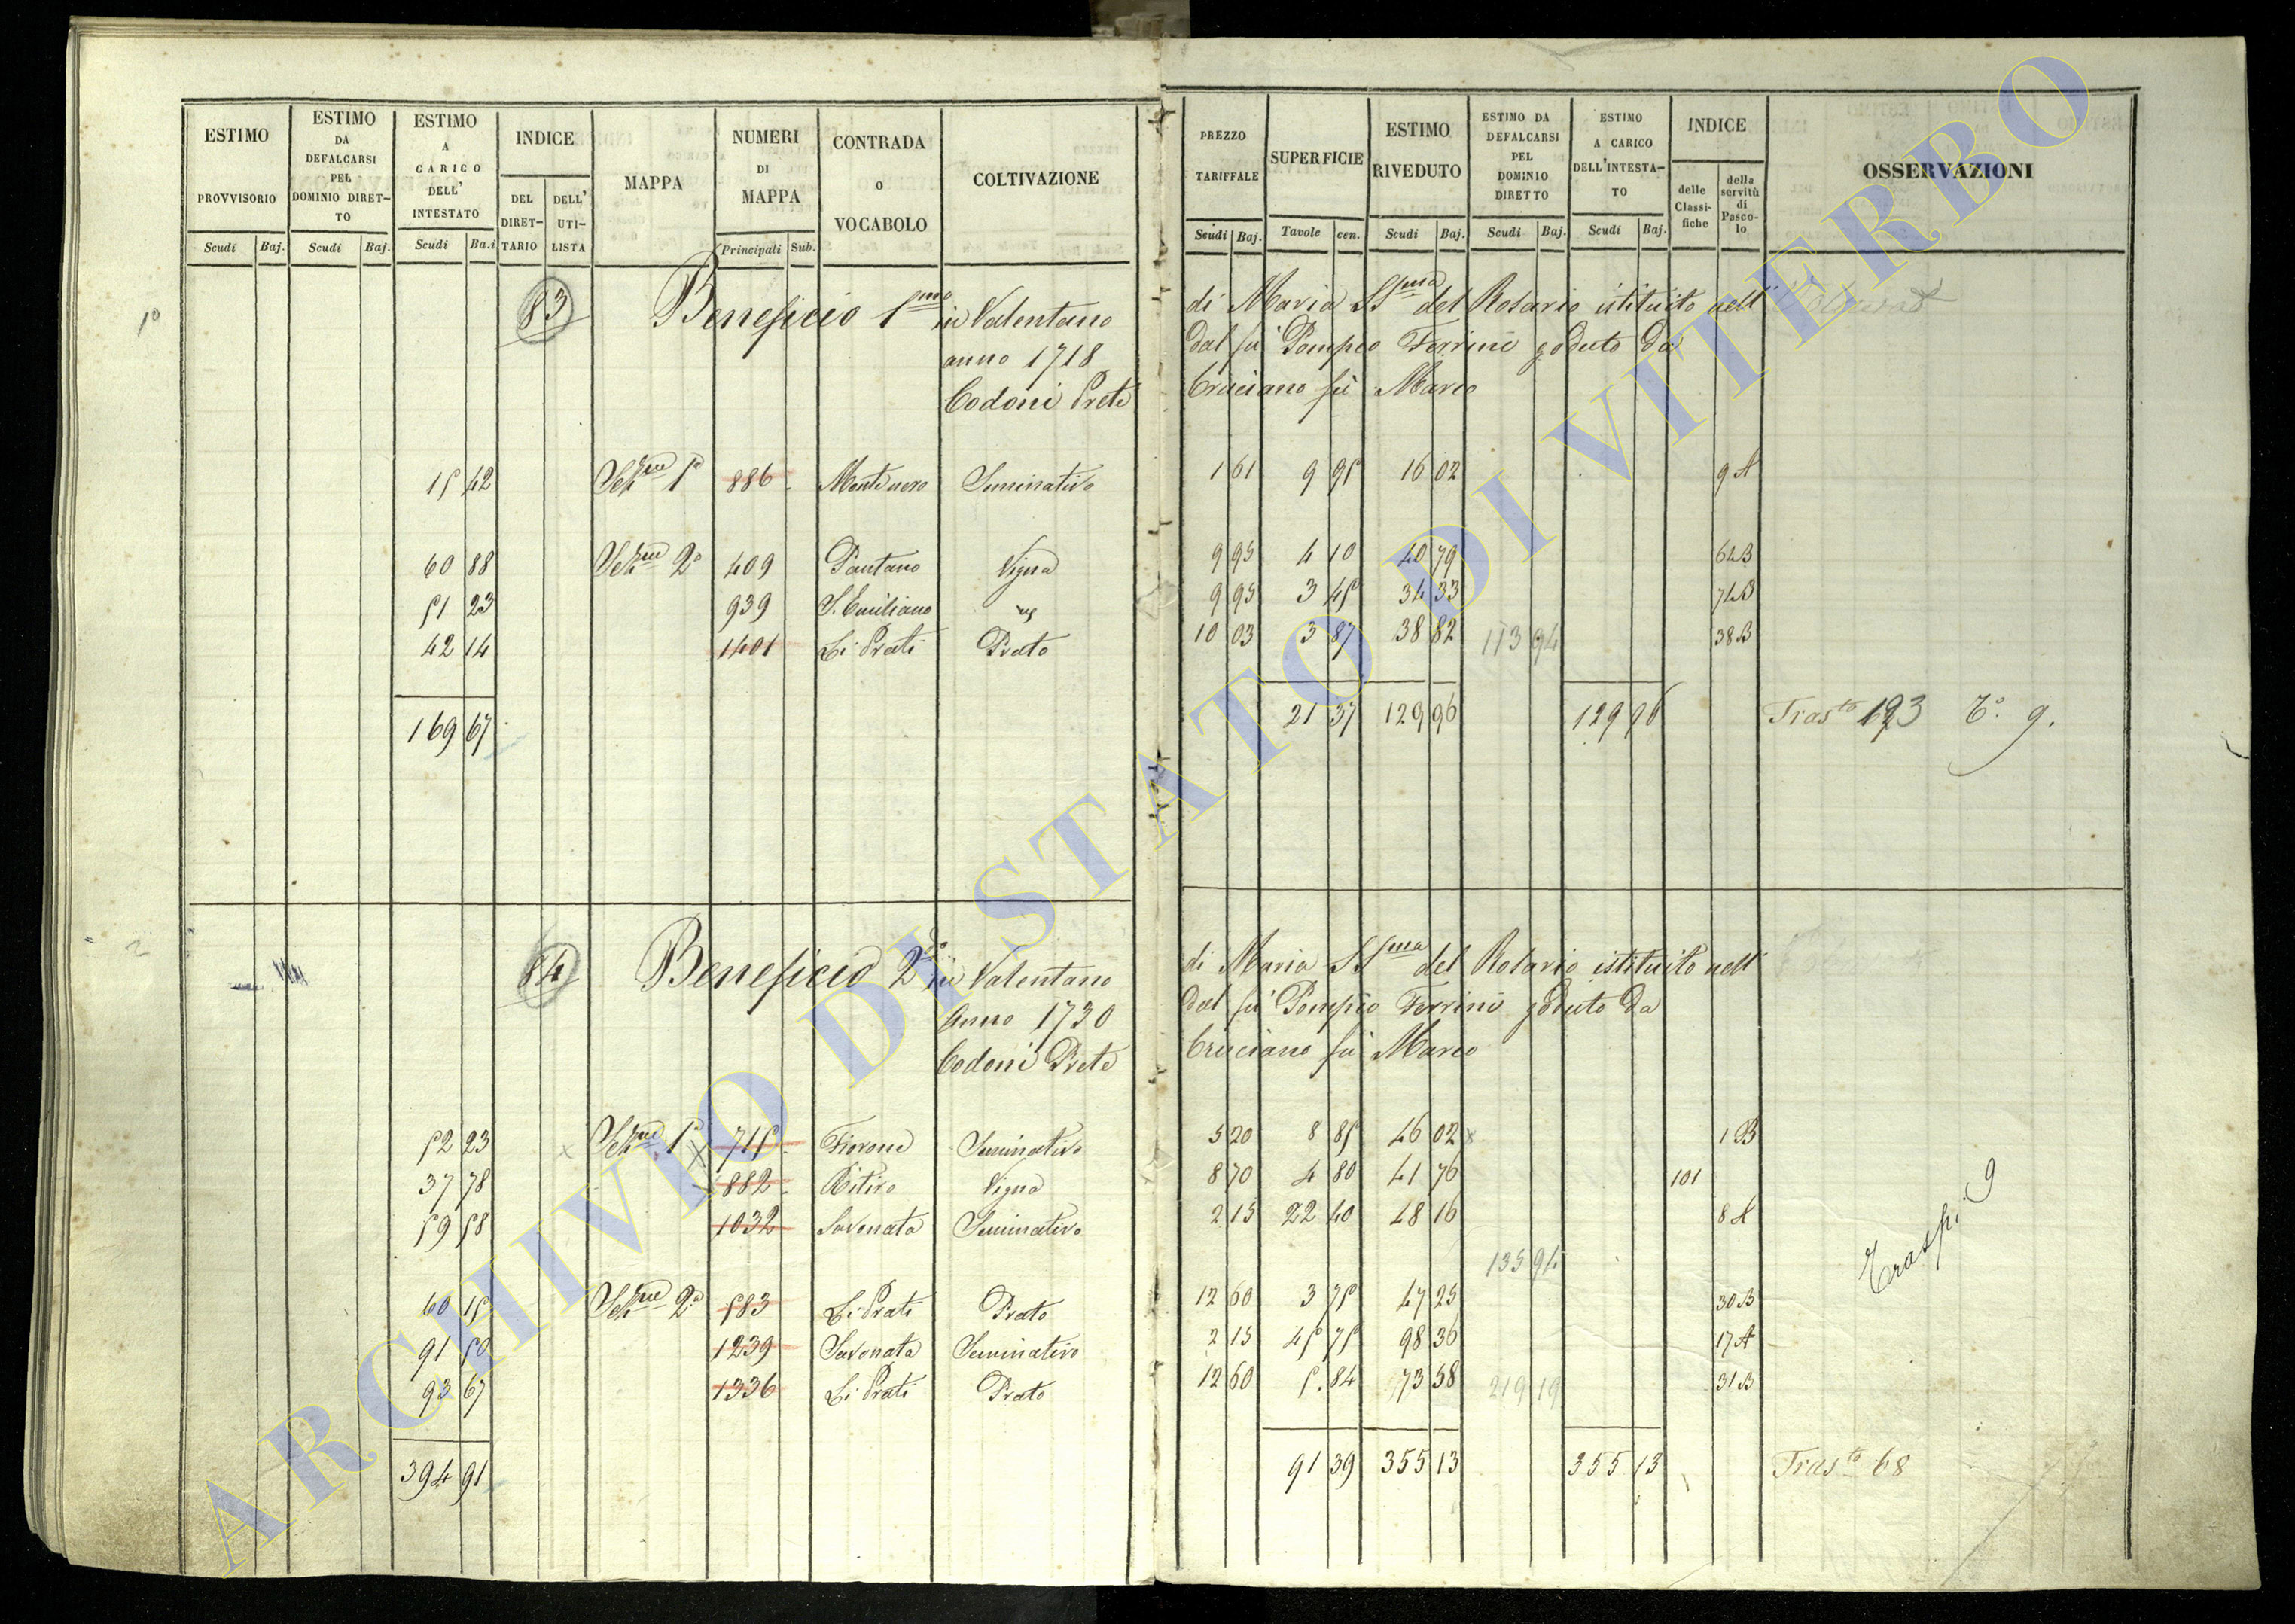 ESTIMO PROVVISORIO Scudi Baj.
ESTIMO DA DEFALCARSI PEL DOMINIO DIRETTO Scudi Baj.
ESTIMO A CARICO DELL' INTESTATO Scudi Ba.i
INDICE DEL DIRETTARIO DELL' UTILISTA
MAPPA
NUMERI DI MAPPA Principali Sub.
CONTRADA O VOCABOLO
COLTIVAZIONE
PREZZO TARIFFALE Scudi Baj.
SUPERFICIE Tavole cen.
ESTIMO RIVEDUTO Scudi Baj.
ESTIMO DA DEFALCARSI PEL DOMINIO DIRETTO Scudi Baj.
ESTIMO A CARICO DELL'INTESTATO Scudi Baj.
INDICE delle Classifiche della servitù di Pascolo
OSSERVAZIONI
1º 83 Beneficio 1mo in Valentano di Maria SSma del Rosario istituito nell'
anno 1718 dal fu Pompeo Ferrini goduto da
Codoni Prete Cruciano fu Marco
15 42 Sezne 1a 886 Montenero Seminativo 1 61 9 95 16 02 9 A
60 88 Sezne 2a 409 Pantano Vigna 9 95 4 10 40 79 64 B
51 23 939 S. Emiliano 9 95 3 45 34 33 74 B
42 14 1401 Li Prati Prato 10 03 3 87 38 82 113 94 38 B
169 67 21 37 129 96 129 96 Trasto 193 To. 9.
2 84 Beneficio 2o in Valentano di Maria SSma del Rosario istituito nell'
Anno 1730 dal fu Pompeo Ferrini goduto da
Codoni Prete Cruciano fu Marco
52 23 Sezne 1a 715 Fiorone Seminativo 5 20 8 85 46 02 1 B
37 78 882 Ritiro Vigna 8 70 4 80 41 76 101
59 58 1032 Savonata Seminativo 2 15 22 40 48 16 8 A
135 94
60 15 Sezne 2a 583 Li Prati Prato 12 60 3 75 47 25 30 B
91 50 1239 Savonata Seminativo 2 15 45 75 98 36 17 A
93 67 1336 Li Prati Prato 12 60 5. 84 73 58 219 19 31 B
Trasp. 9
394 91 91 39 355 13 355 13 Trasto 68
ARCHIVIO DI STATO DI VITERBO